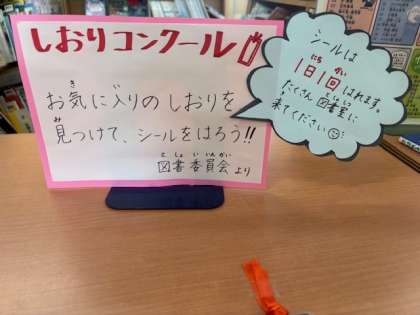 しおりコンクール
お気に入りのしおりを
見つけて、シールをはろう!!
図書委員会より
シールは
1日1回はれます。
たくさん図書室に
来てください